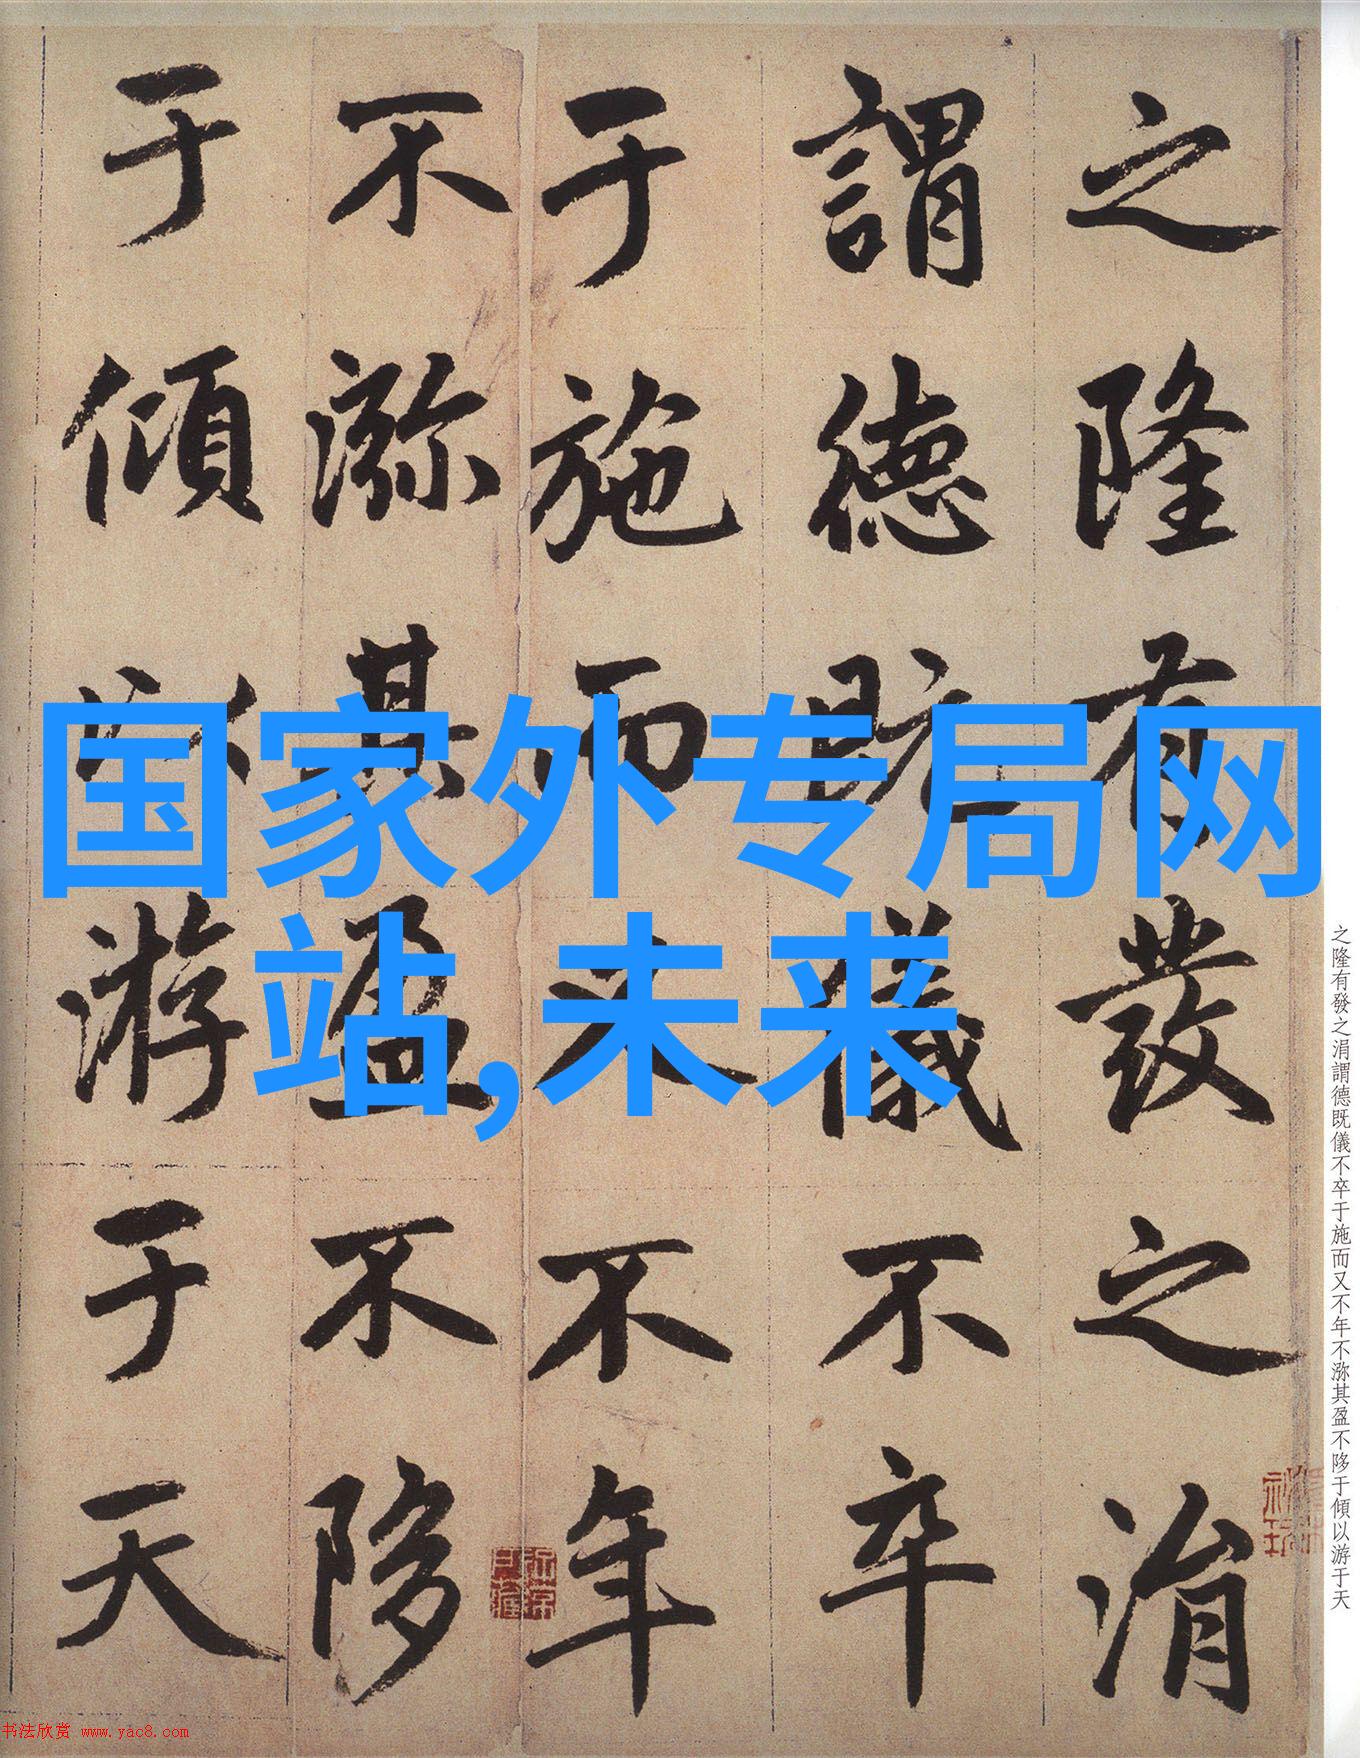 之隆有發之涓
謂德既儀不卒
于施而又不年
不㳽其盈不陊
于傾以游于天
国家外专局网
站,未来
之隆有發之涓謂德既儀不卒于施而又不年不㳽其盈不陊于傾以游于天
书法欣赏 www.yac8.com